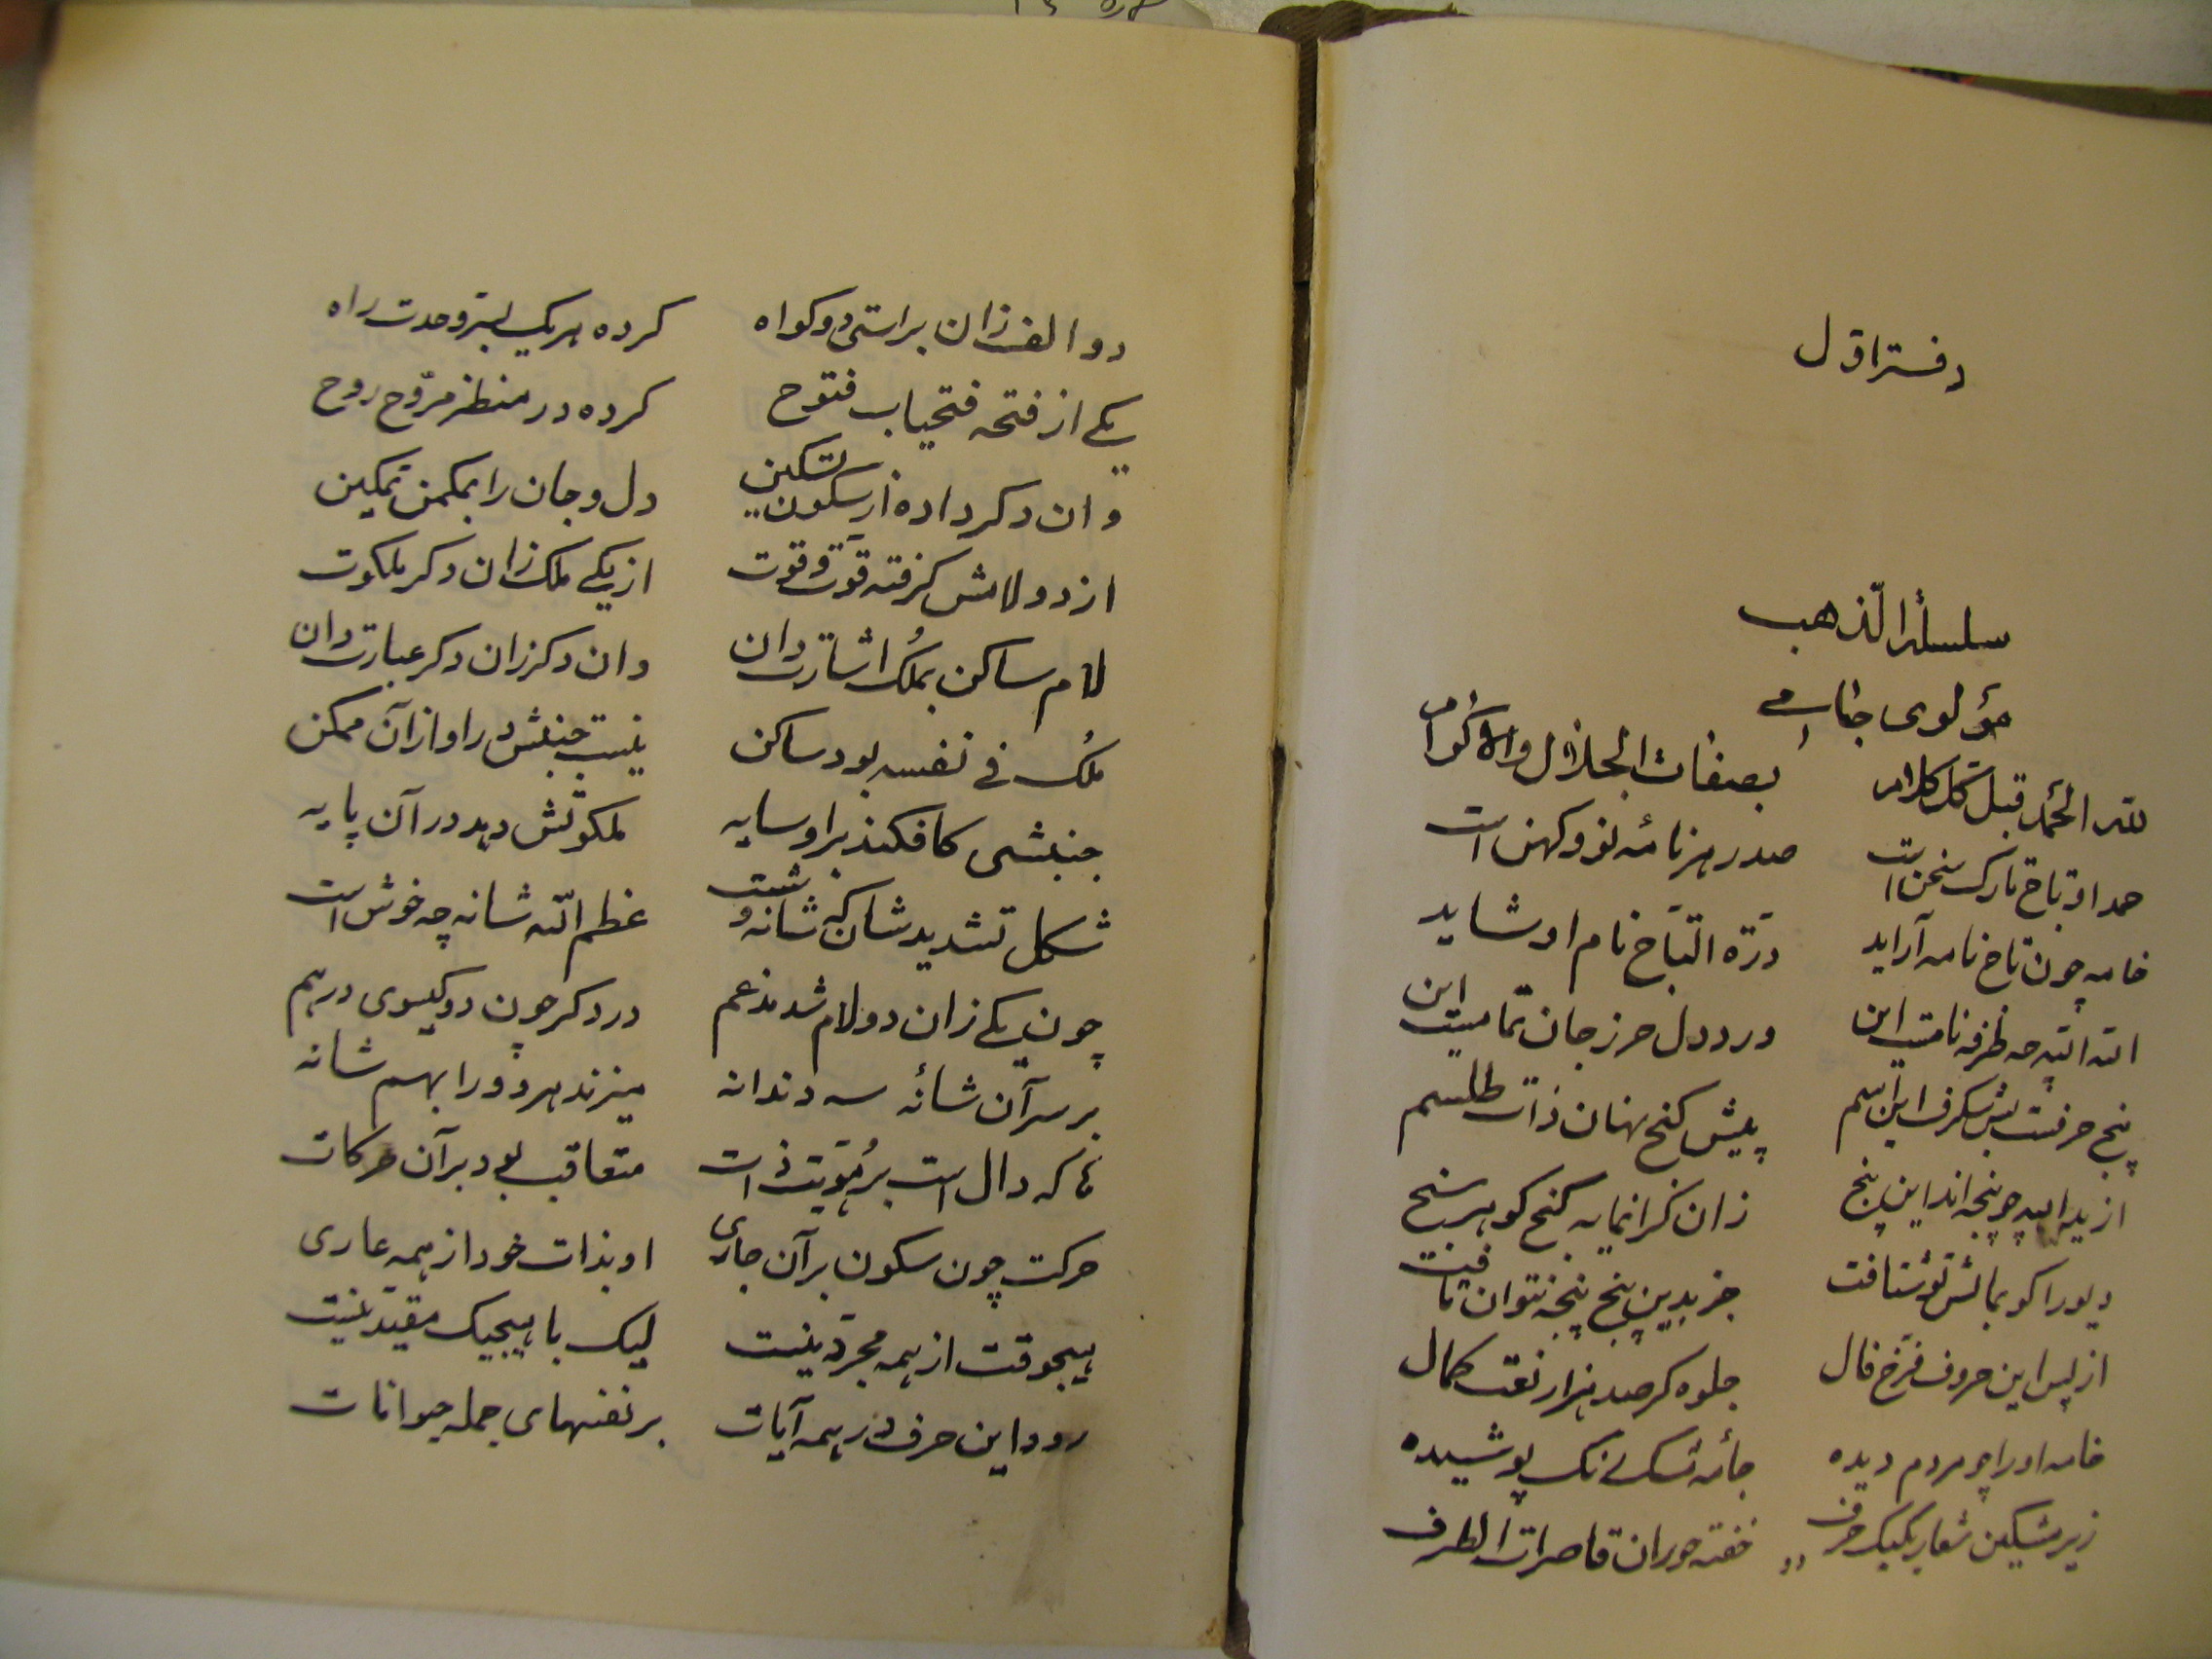 دفتر اوّل
سلسلة الذّهب
مؤلوی جامی
لله الحمد قبل کل کلام بصفات الجلال والاکرام
حمد او تاج تارک سخن است صدر هر نامهٔ نو و کهن است
خامه چون تاج نامه آراید درّة التّاج نام او شاید
الله الله چه طرفه نامست این ورد دل حرز جان تمامیست این
پنج حرفست بس شکرف این اسم پیش کنج نهان ذات طلسم
از یدالله چو پنجه اند این پنج زان کرانمایه کنج کوهر سنج
دیو را کو بمالش تو شتافت جز بدین پنج پنجه نتوان تافت
از پس این حروف فرّخ فال جلوه کر صد هزار نعت کمال
خامه او را چو مردم دیده جامهٔ مشک رنک پوشیده
زیر مشکین شعار یکیک حرف خفته حوران قاصرات الطرف
دو الف زان براستی دو کواه کرده هر یک بسرّ وحدت راه
یکی از فتحه فتحیاب فتوح کرده در منظر مروّح روح
وان دکر داده از سکون تسکین دل و جان را بمکمن تمکین
از دو لامش کرفته قوّت و قوت از یکی ملک زان دکر ملکوت
لام ساکن بمُلک اشارت دان وان دکر زان دکر عبارت دان
مُلک فی نفسه بود ساکن نیست جنبش ورا و از آن ممکن
جنبشی کافکند بر او سایه ملکوتش دهد در آن پایه
شکل تشدید شان که شانه وشست عظم الله شانه چه خوش است
چون یکی زان دو لام شد مدغم در دکر چون دو کیسوی درهم
بر سر آن شانهٔ سه دندانه میزند هر دو را بهم شانه
ها که دال است بر هُویّت ذات متعاقب بود بر آن حرکات
حرکت چون سکون بر آن جاری او بذات خود از همه عاری
هیچوقت از همه مجرّد نیست لیک با هیچیک مقیّد نیست
رود این حرف در همه آیات بر نفسهای جمله حیوانات